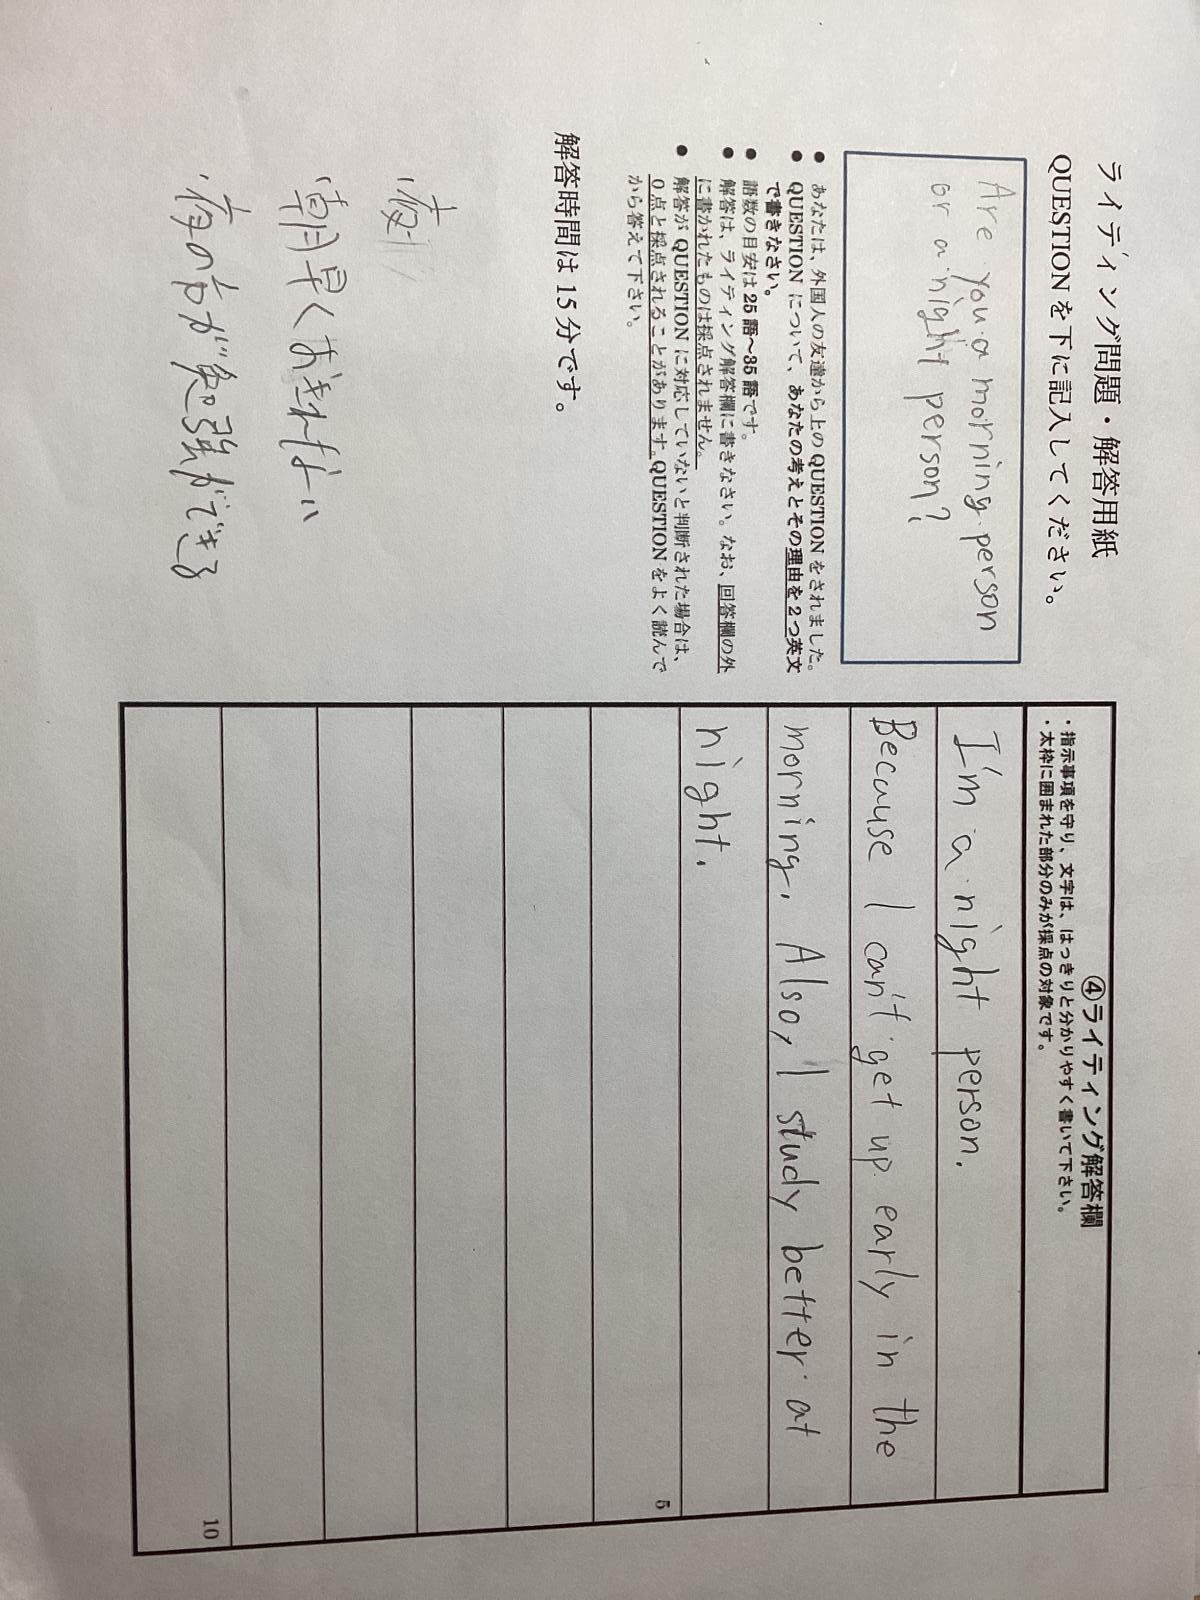 ライティング問題・解答用紙
QUESTION を下に記入してください。
Are you a morning person
or a night person?
● あなたは、外国人の友達から上の QUESTION をされました。
● QUESTION について、あなたの考えとその理由を２つ英文
で書きなさい。
● 語数の目安は 25 語～35 語です。
● 解答は、ライティング解答欄に書きなさい。なお、回答欄の外
に書かれたものは採点されません。
● 解答が QUESTION に対応していないと判断された場合は、
０点と採点されることがあります。QUESTION をよく読んで
から答えて下さい。
解答時間は 15 分です。
・夜
・朝早くおきれない
・夜の方が勉強ができる
④ライティング解答欄
・指示事項を守り、文字は、はっきりと分かりやすく書いて下さい。
・太枠に囲まれた部分のみが採点の対象です。
I'm a night person.
Because I can't get up early in the
morning. Also, I study better at
night.
5
10